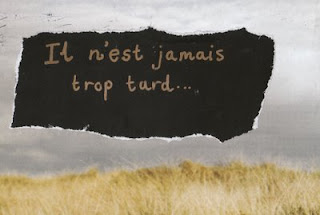 Il n'est jamais
trop tard...